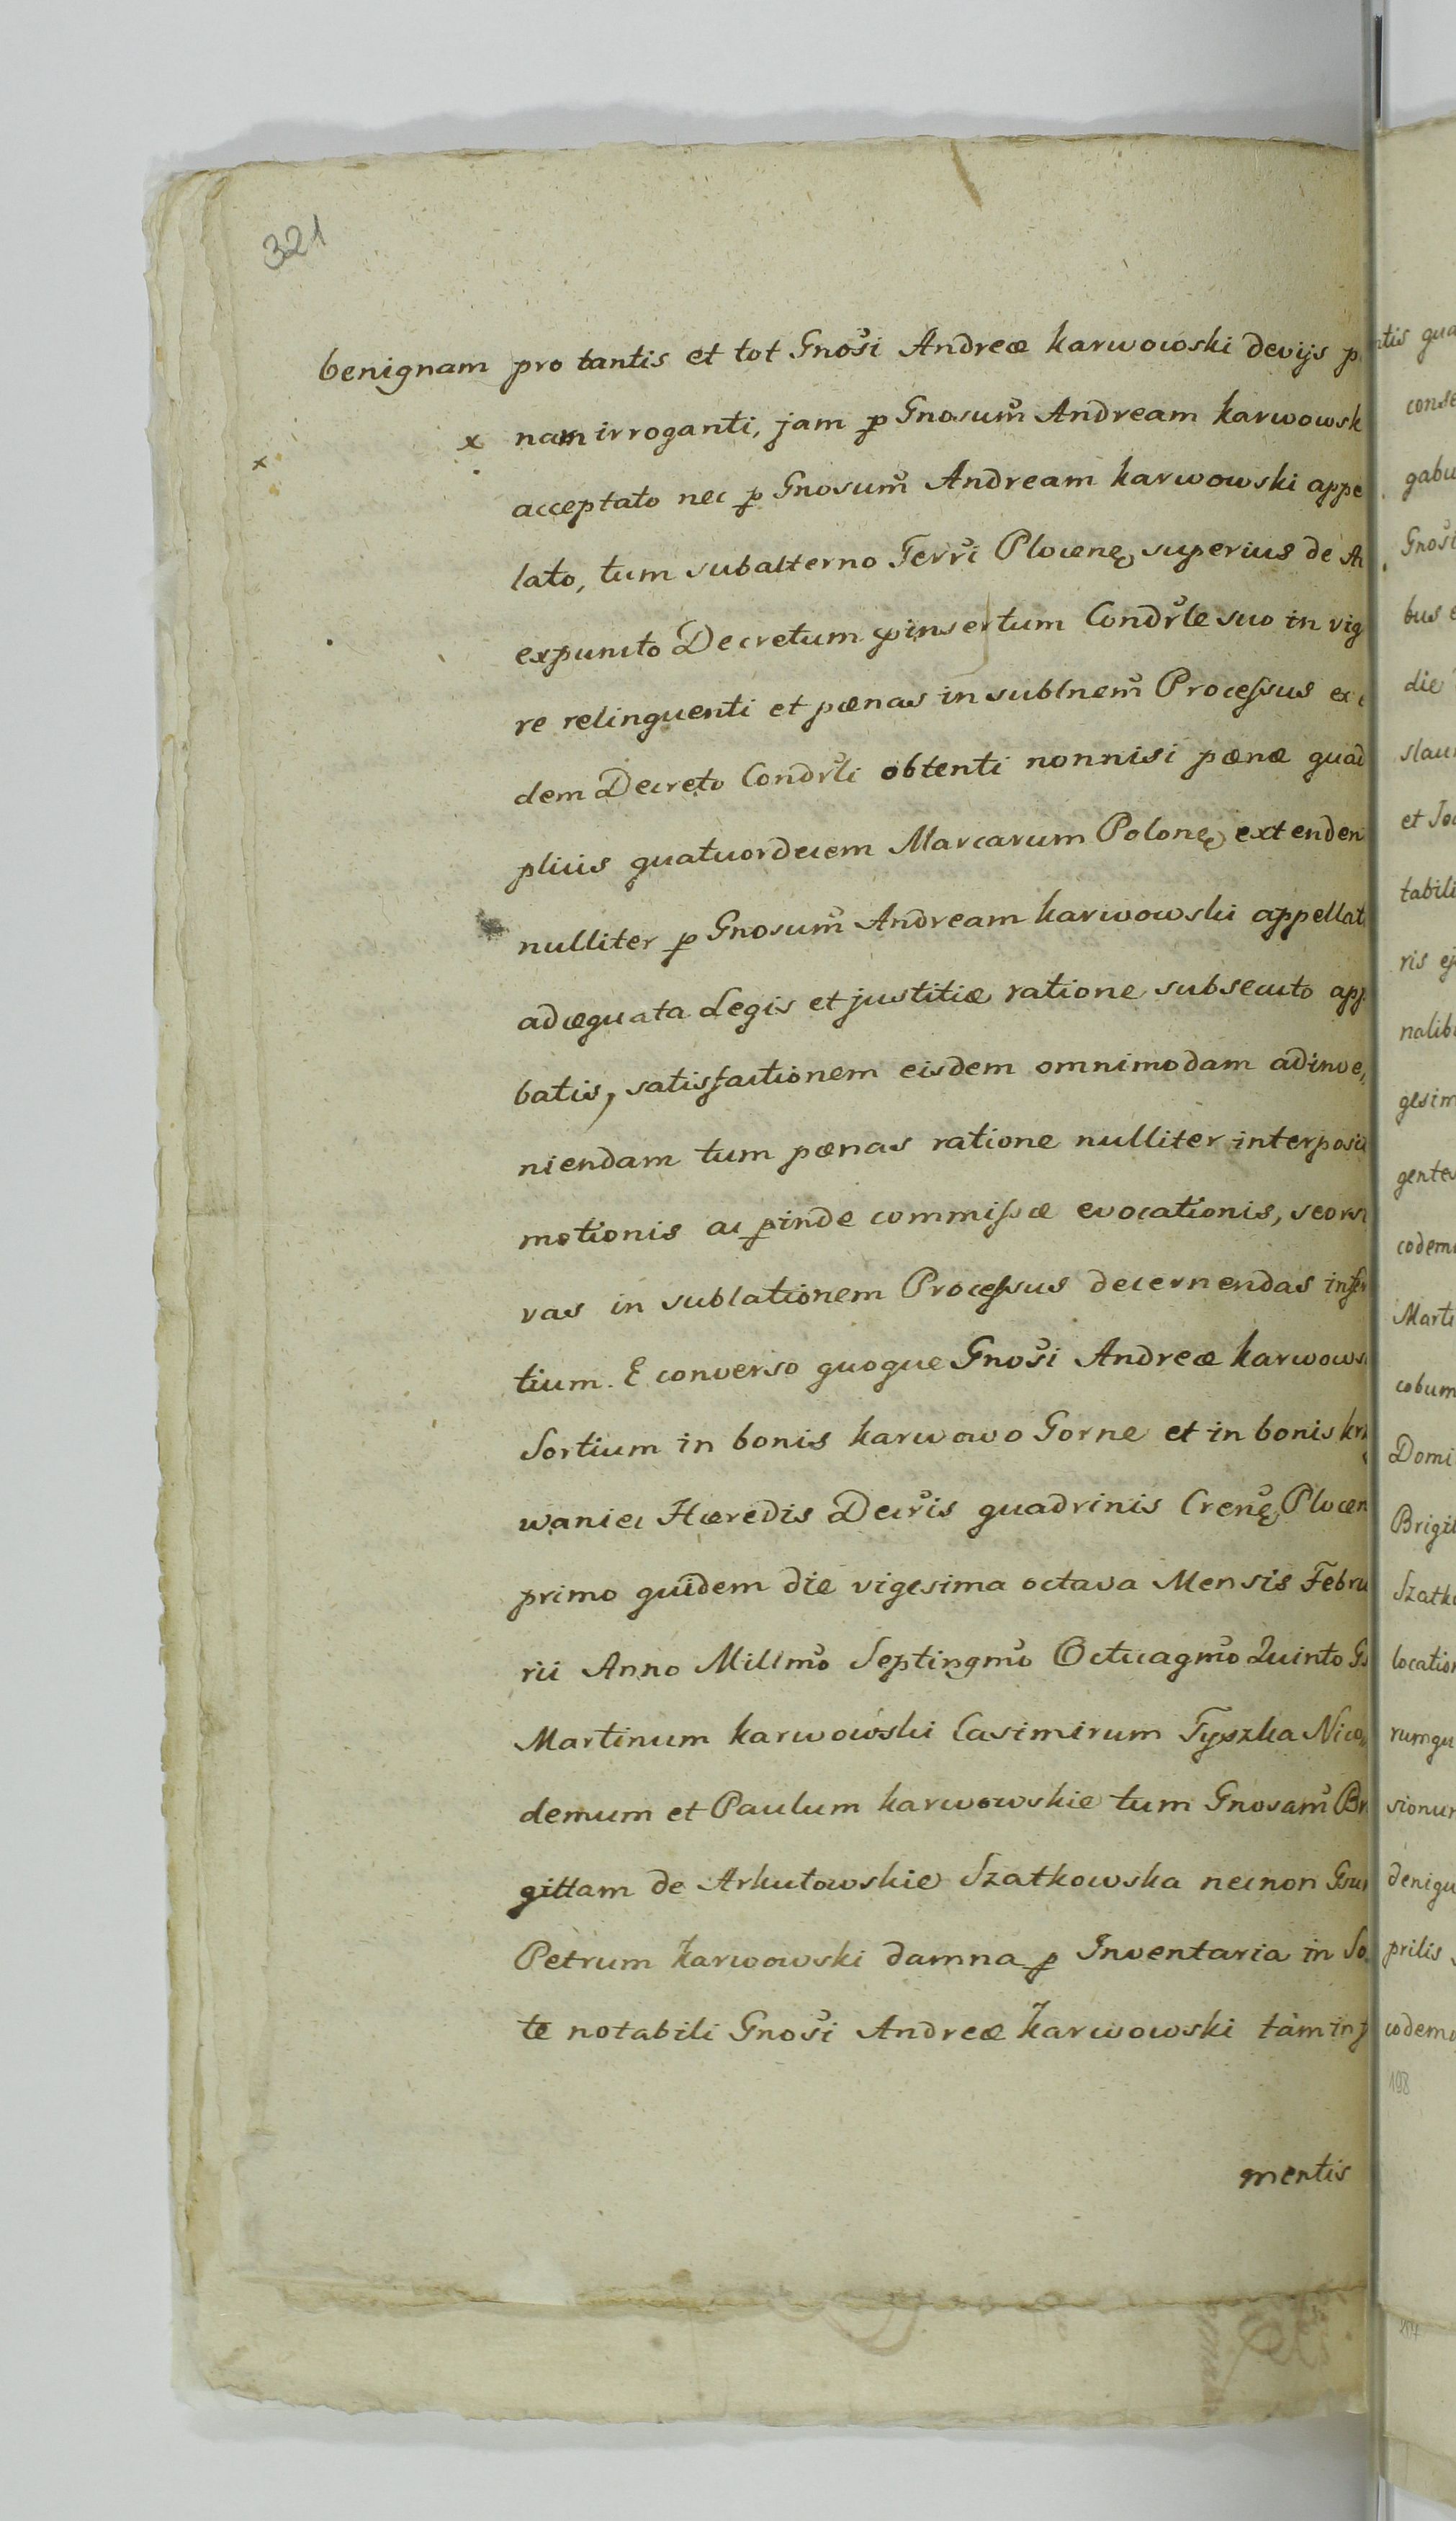 321
benignam pro tantis et tot Gnosi Andreæ karwowski devijs
x nam irroganti, jam p Gnosum Andream karwowsk
x
acceptato nec p Gnosum Andream karwowski appe
lato, tum subalterno Terri Plocenę superius de
expuncto Decretum insertum Condrle suo in vig
re relinquenti et pœnas in sublnem Processus ex
dem Decreto Condrli obtenti nonnisi pœnæ quad
plicis quatuordecem Marcarum Polonę extenden
nulliter p Gnosum Andream karwowski appellat
adæquata Legis et justitiæ ratione subsecuto app
batis, satisfactionem eisdem omnimodam adinve,
niendam tum pœnas ratione nulliter interposi
motionis ac pinde commissæ evocationis, seors
vas in sublationem Processus decernendas infer
tium. E converso quoque Gnosi Andreæ karwows
Sortium in bonis karwowo Gorne et in bonis
waniec Hæredis Decris quadrinis Crenę Plocen
primo quidem die vigesima octava Mensis Febru
rii Anno Millmo Septingmo Octuagmo Quinto
Martinum karwowski Casimirum Tyszka Nico,,
demum et Paulum karwowskie tum Gnosam Br
gittam de Arkutowskie Szatkowska necnon
Petrum Karwowski damna p Inventaria in So
te notabili Gnosi Andreæ Karwowski tàm in
mentis
ntis qua
conse
gabu
Gnosi
bus
die
slau
et Jo
tabili
ris ej
nalib
gesim
gentes
codem
Marti
cobum
Domi
Brigit
Szatk
location
rumqu
sionum
deniqu
prilis
codem
198